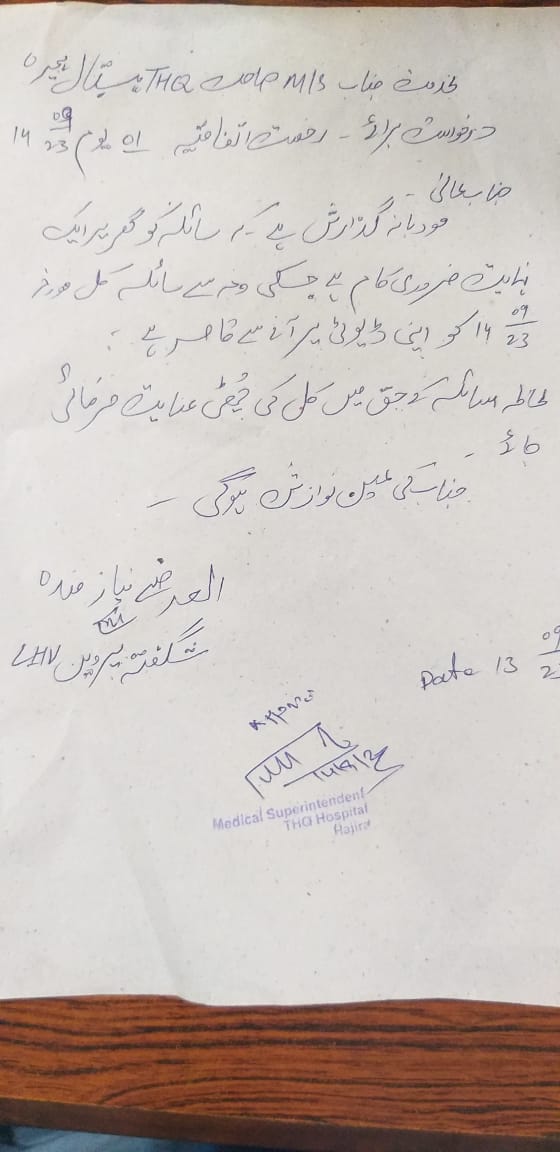 بخدمت جناب M/S صاحب THQ ہسپتال ہجیرہ
درخواست برائے - رخصت اتفاقیہ 01 یوم 14 09/23
جناب عالی -
مودبانہ گذارش ہے کہ سائلہ کو گھر پر ایک
نہایت ضروری کام ہے جسکی وجہ سے سائلہ کل مورخہ
14 09/23 کو اپنی ڈیوٹی پر آنے سے قاصر ہے :
لہٰذا سائلہ کے حق میں کل کی چُھٹی عنایت فرمائی
جائے -
جناب کی عین نوازش ہوگی -
العارضے نیاز مندہ
شگفتہ پروین LHV
Date 13 09/2
Medical Superintendent
THQ Hospital
Hajira